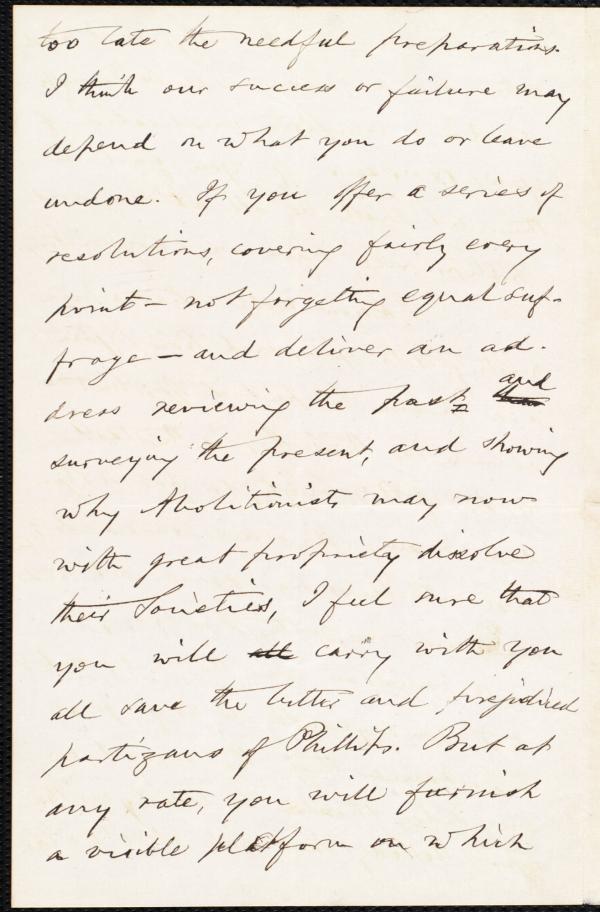 too late the needful preparations.
I think our success or failure may
depend on what you do or leave
undone. If you offer a series of
resolutions, covering fairly every
point — not forgetting equal suf-
frage — and deliver an ad-
dress reviewing the past, and
surveying the present, and showing
why Abolitionists may now
with great propriety dissolve
their Societies, I feel sure that
you will all carry with you
all save the bitter and prejudiced
partizans of Phillips. But at
any rate, you will furnish
a visible platform on which